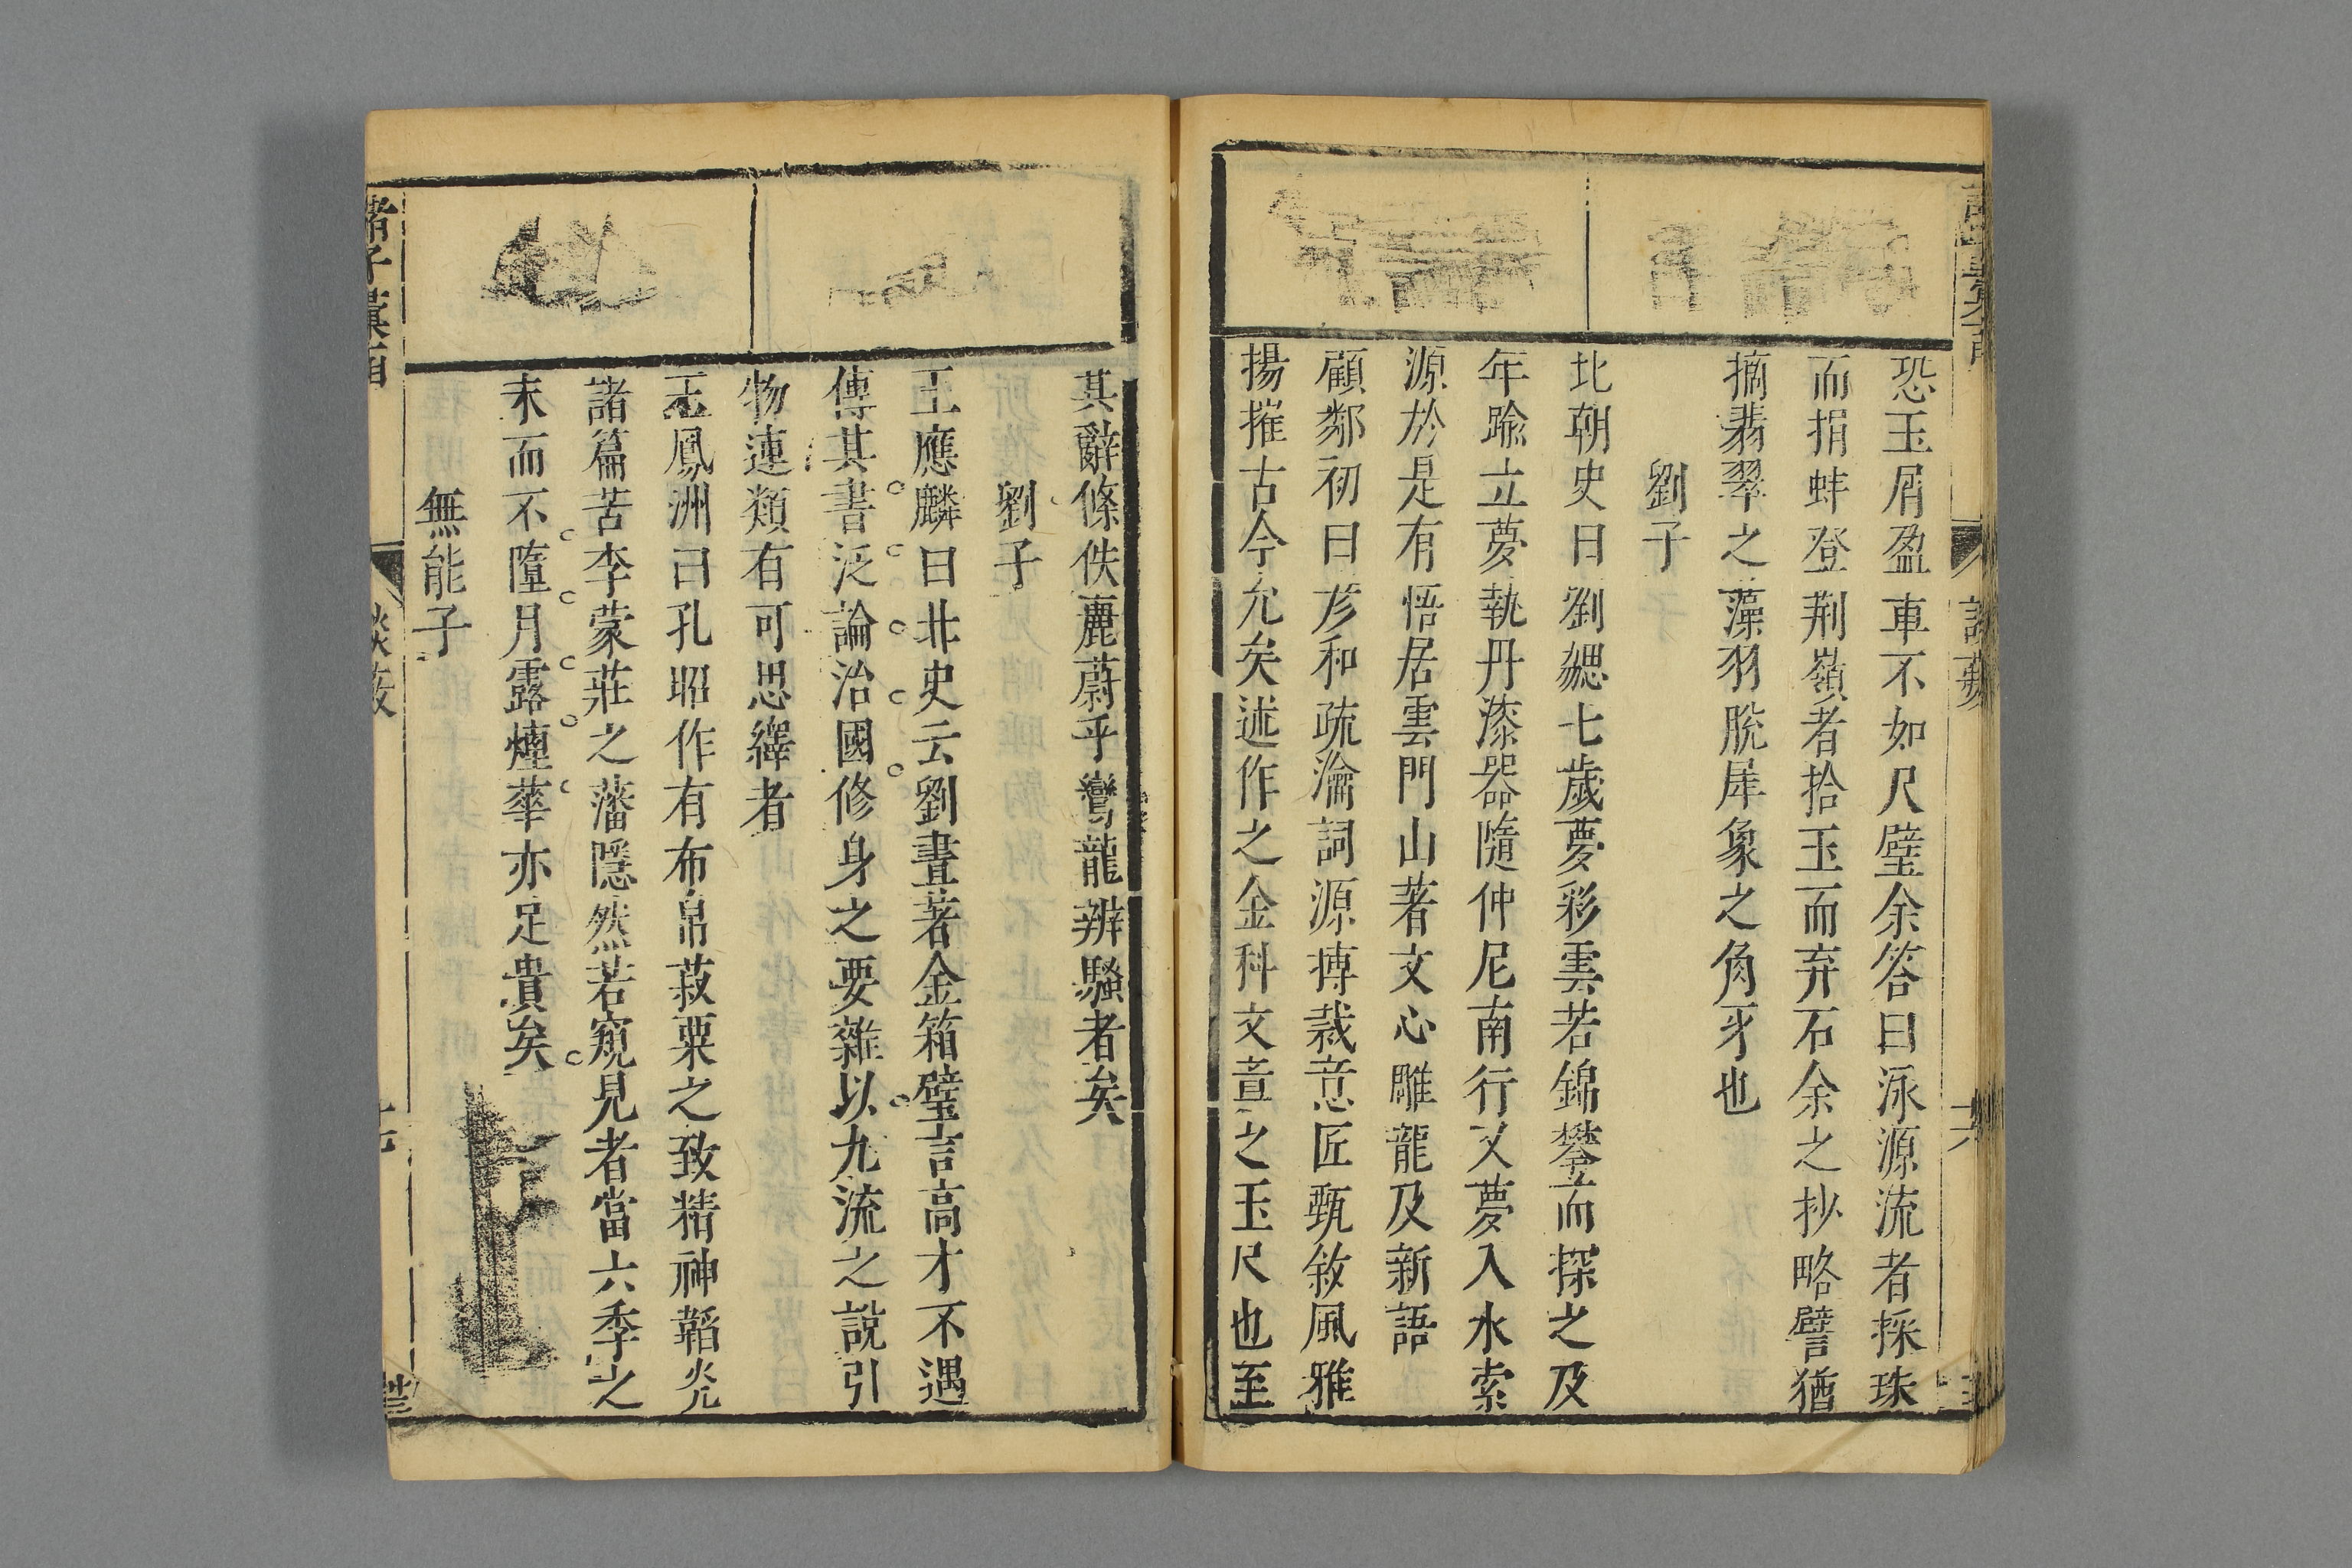 恐玉屑盈車不如尺璧余答曰泳源流者採珠
而捐蚌登荆嶺者拾玉而弃石余之抄略譬猶
摘翡翠之藻羽脫犀象之角牙也
劉子
北朝史曰劉勰七歲夢彩雲若錦攀而探之及
年踰立夢執丹漆器隨仲尼南行又夢入水索
源於是有悟居雲門山著文心雕龍及新語
顧鄰初曰彦和疏瀹詞源摶裁意匠甄敘風雅
揚摧古今允矣述作之金科文章之玉尺也至
其辭條佚麗蔚乎鸞龍辨騷者矣
劉子
王應麟曰北史云劉晝著金箱璧言高才不遇
傳其書泛論治國修身之要雜以九流之說引
物連類有可思繹者
王鳳洲曰孔昭作有布帛菽粟之致精神韜光
諸篇苦李蒙莊之藩隱然若窺見者當六季之
末而不墮月露煙華亦足貴矣
無能子